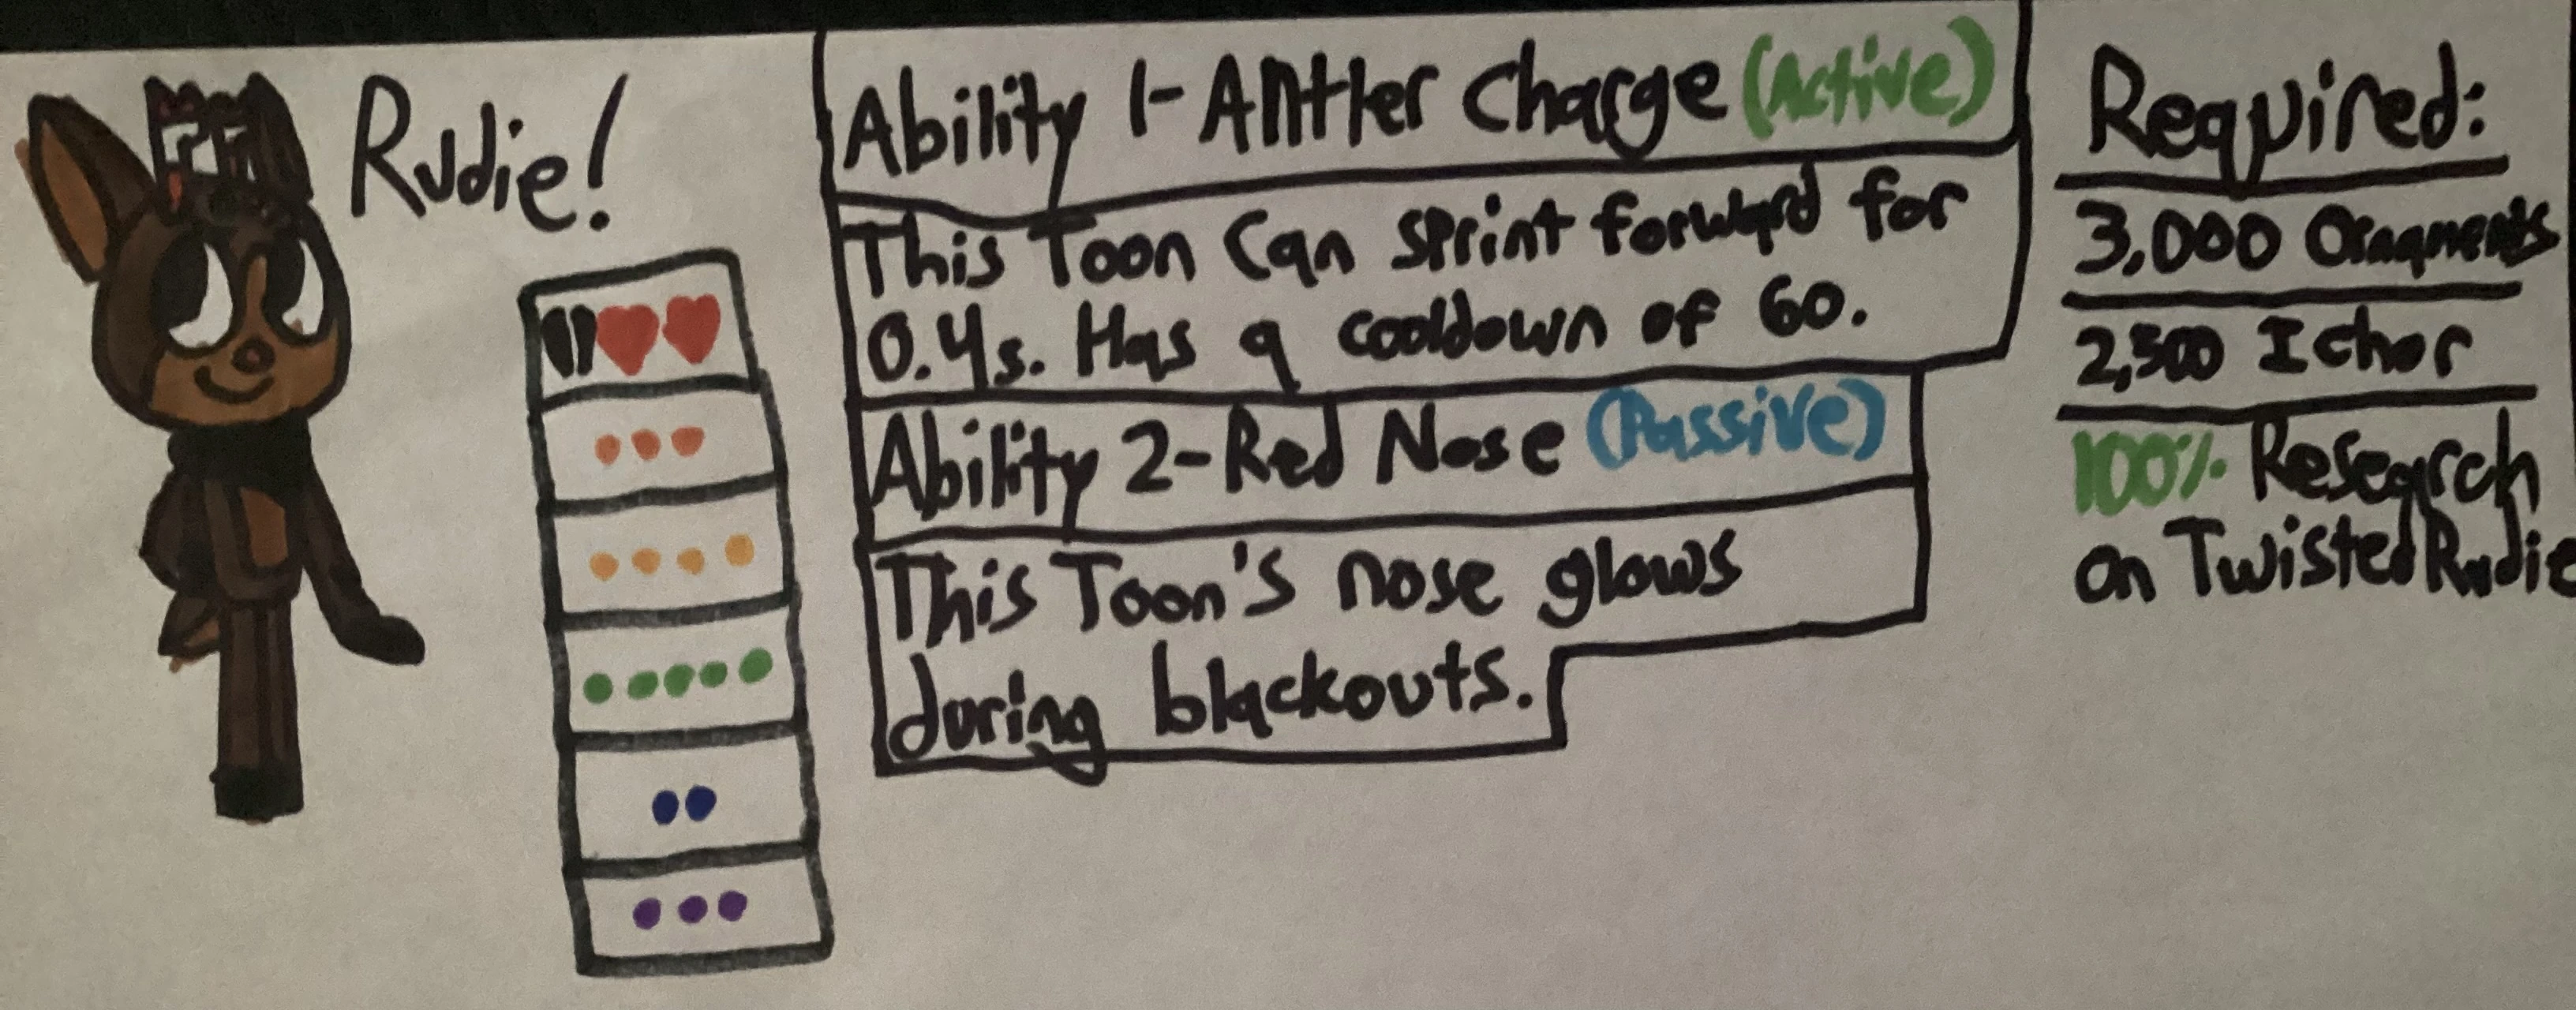 Rudie!
Ability 1-Antler Charge (Active)
This Toon Can sprint forward for
0.4s. Has a cooldown of 60.
Ability 2-Red Nose (Passive)
This Toon's nose glows
during blackouts.
Required:
3,000 Ornaments
2,500 Ichor
100% Research
on Twisted Rudie